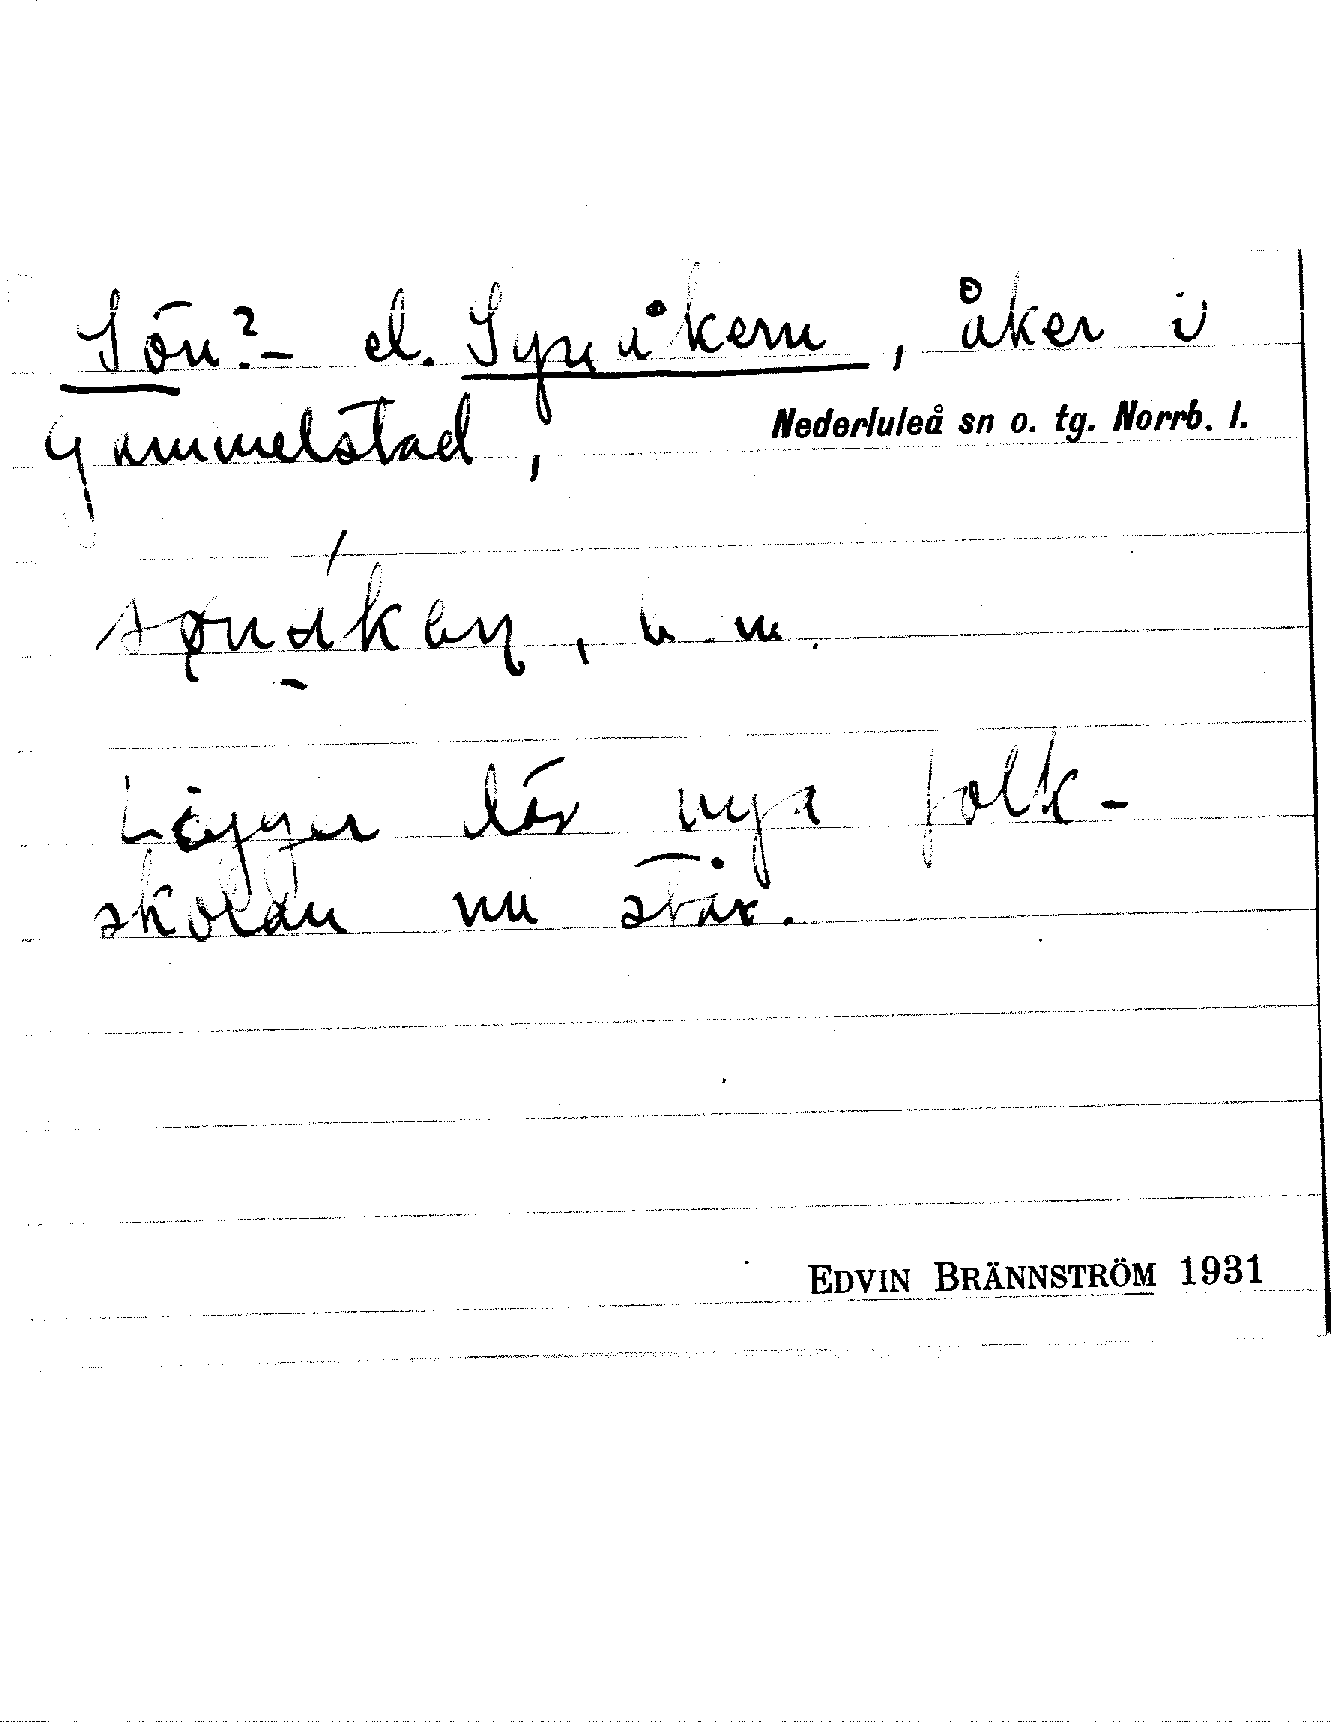 Sön?- el. Synåkern, åker i
Gammelstad,
Nederluleå sn o. tg. Norrb. l.
b. m.
Ligger där nya folk-
skolan nu står.
EDVIN BRÄNNSTRÖM 1931